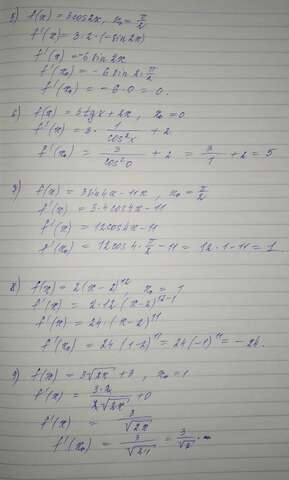 5) f(x) = 3cos2x, x₀ = π/2
f'(x) = 3·2·(-sin2x)
f'(x) = -6sin2x
f'(x₀) = -6sin2·π/2
f'(x₀) = -6·0 = 0.
6) f(x) = 3tgx + 2x, x₀ = 0
f'(x) = 3·1/cos²x + 2
f'(x₀) = 3/cos²0 + 2 = 3/1 + 2 = 5
7) f(x) = 3sin4x - 11x, x₀ = π/2
f'(x) = 3·4cos4x - 11
f'(x) = 12cos4x - 11
f'(x₀) = 12cos4·π/2 - 11 = 12·1 - 11 = 1
8) f(x) = 2(x-2)¹², x₀ = 1
f'(x) = 2·12(x-2)¹²⁻¹
f'(x) = 24·(x-2)¹¹
f'(x₀) = 24(1-2)¹¹ = 24(-1)¹¹ = -24.
9) f(x) = 3√2x + 3, x₀ = 1
f'(x) = 3·2/2√2x + 0
f'(x) = 3/√2x
f'(x₀) = 3/√2·1 = 3/√2.